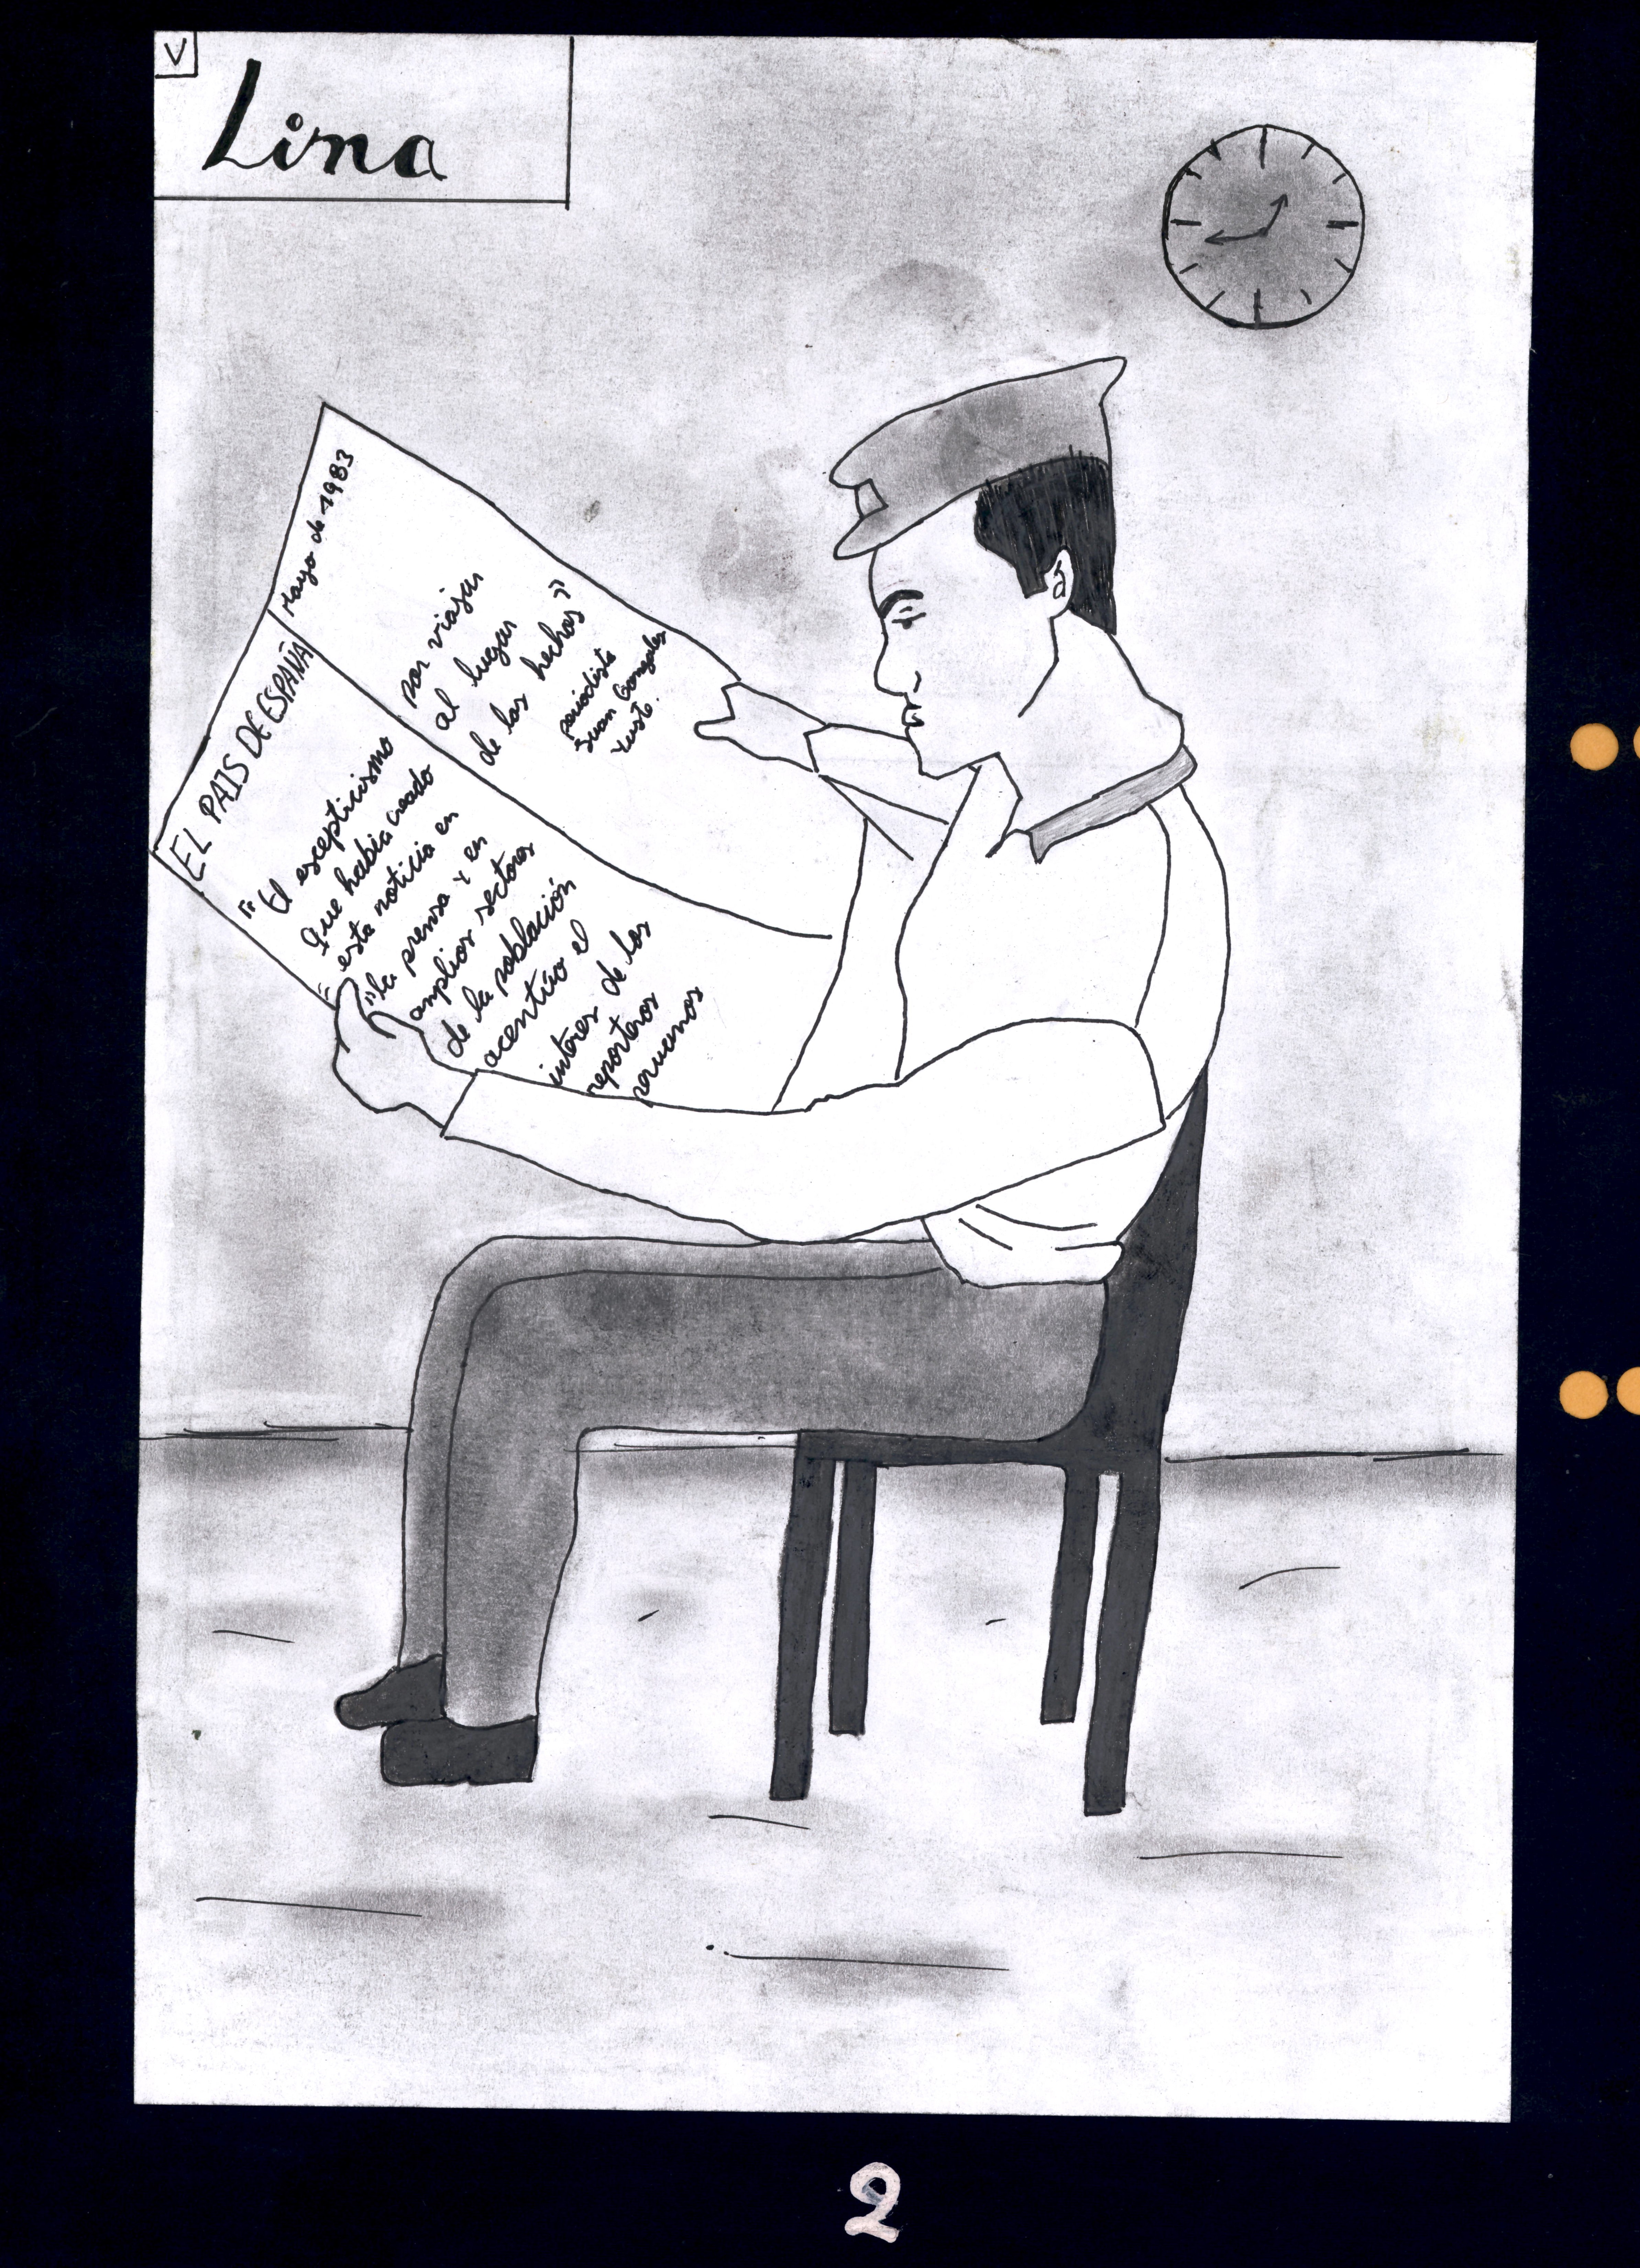 V
Lima
EL PAIS DE ESPAÑA
Mayo de 1983
"El escepticismo
que había creado
esta noticia en
"la prensa y en
amplios sectores
de la población
acentúo el
interes de los
reporteros
peruanos
por viajar
al lugar
de los hechos"
periodista
Juan Gonzales
Yuste.
2